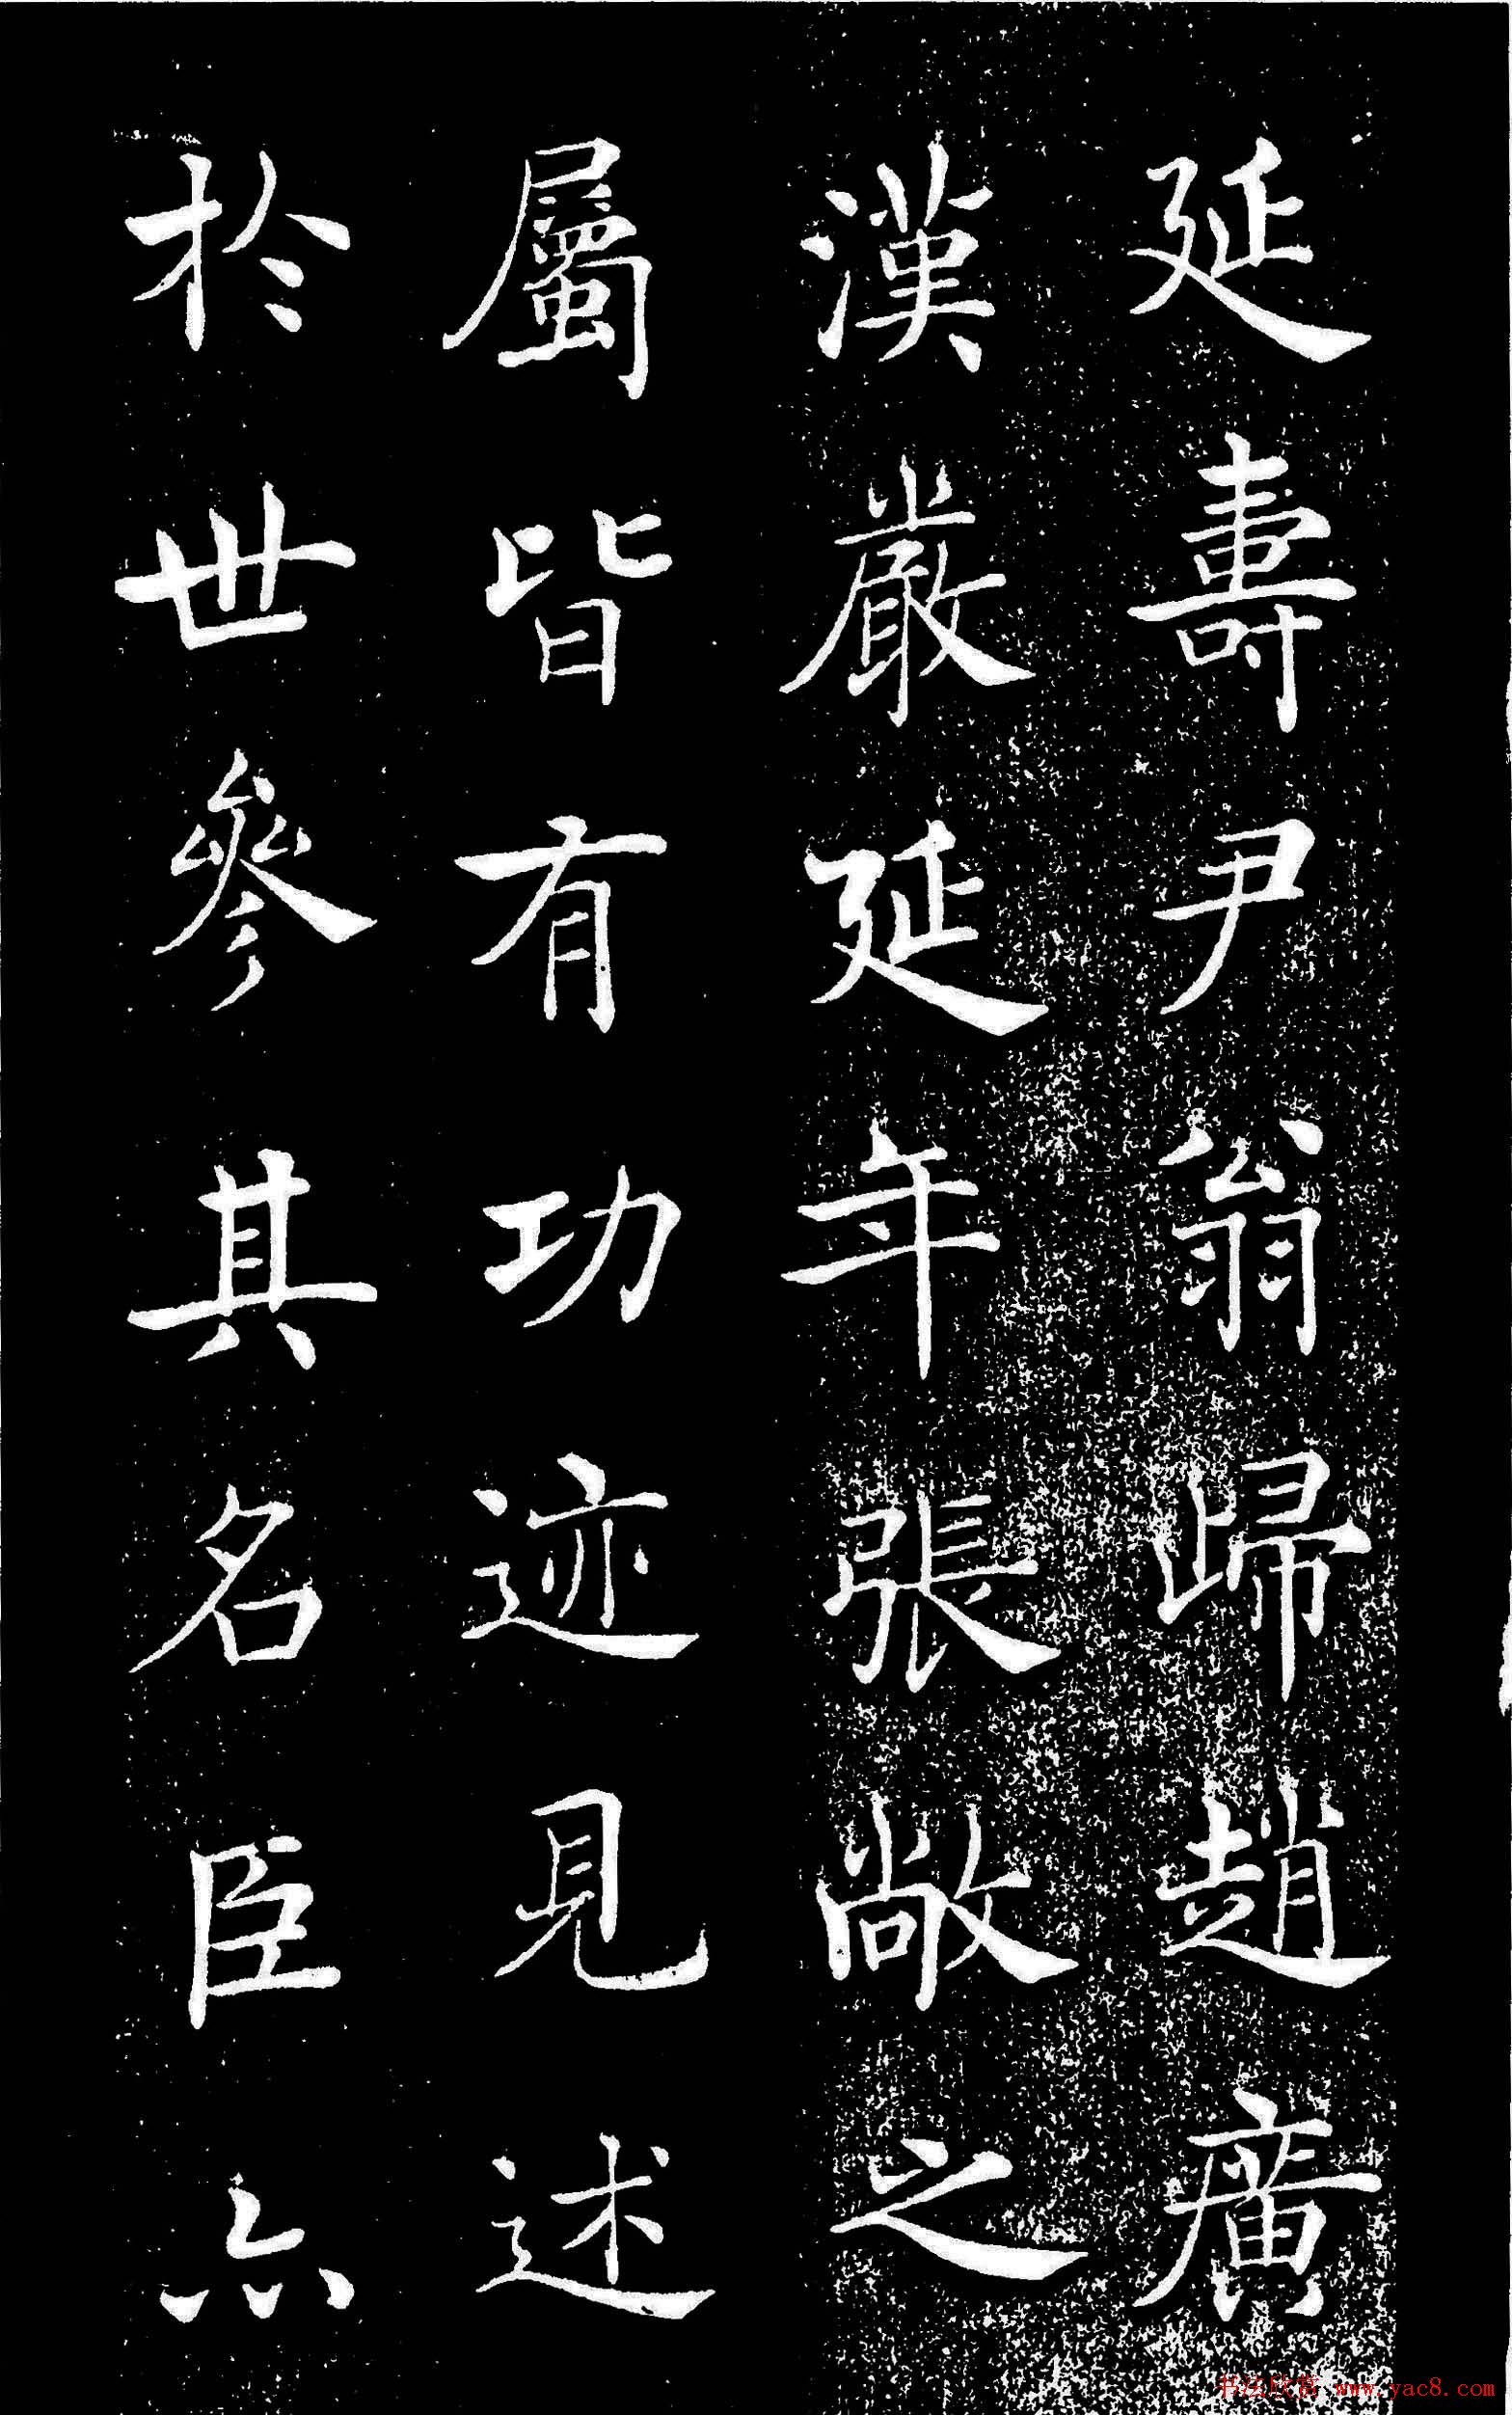 延壽尹翁歸趙廣
漢嚴延年張敞之
屬皆有功迹見述
於世參其名臣亦
书法欣赏 www.yac8.com